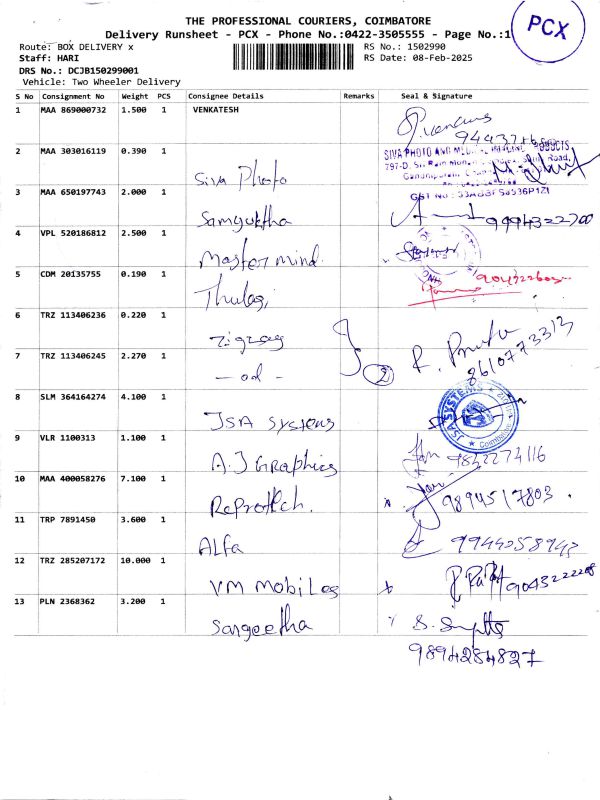 THE PROFESSIONAL COURIERS, COIMBATORE
Delivery Runsheet - PCX - Phone No.:0422-3505555 - Page No.:1
PCX
Route: BOX DELIVERY x
RS No.: 1502990
Staff: HARI
RS Date: 08-Feb-2025
DRS No.: DCJB150299001
Vehicle: Two Wheeler Delivery
S No Consignment No Weight PCS Consignee Details Remarks Seal & Signature
1 MAA 869000732 1.500 1 VENKATESH
2 MAA 303016119 0.390 1 Siva Photo
SIVA PHOTO AND
797-D,
3 MAA 650197743 2.000 1 Samyuktha 9994322700
4 VPL 520186812 2.500 1 Mastermind
5 CDM 20135755 0.190 1 Thulasi
6 TRZ 113406236 0.220 1 zigzag
7 TRZ 113406245 2.270 1 - od - 2 8610773313
8 SLM 364164274 4.100 1 JSA Systems
JSA SYSTEMS
Coimbatore
9 VLR 1100313 1.100 1 A.J Graphics 9842274116
10 MAA 400058276 7.100 1 Reprotech. 9894517803.
11 TRP 7891450 3.600 1 Alfa
12 TRZ 285207172 10.000 1 VM Mobiles
13 PLN 2368362 3.200 1 Sangeetha
9894284827